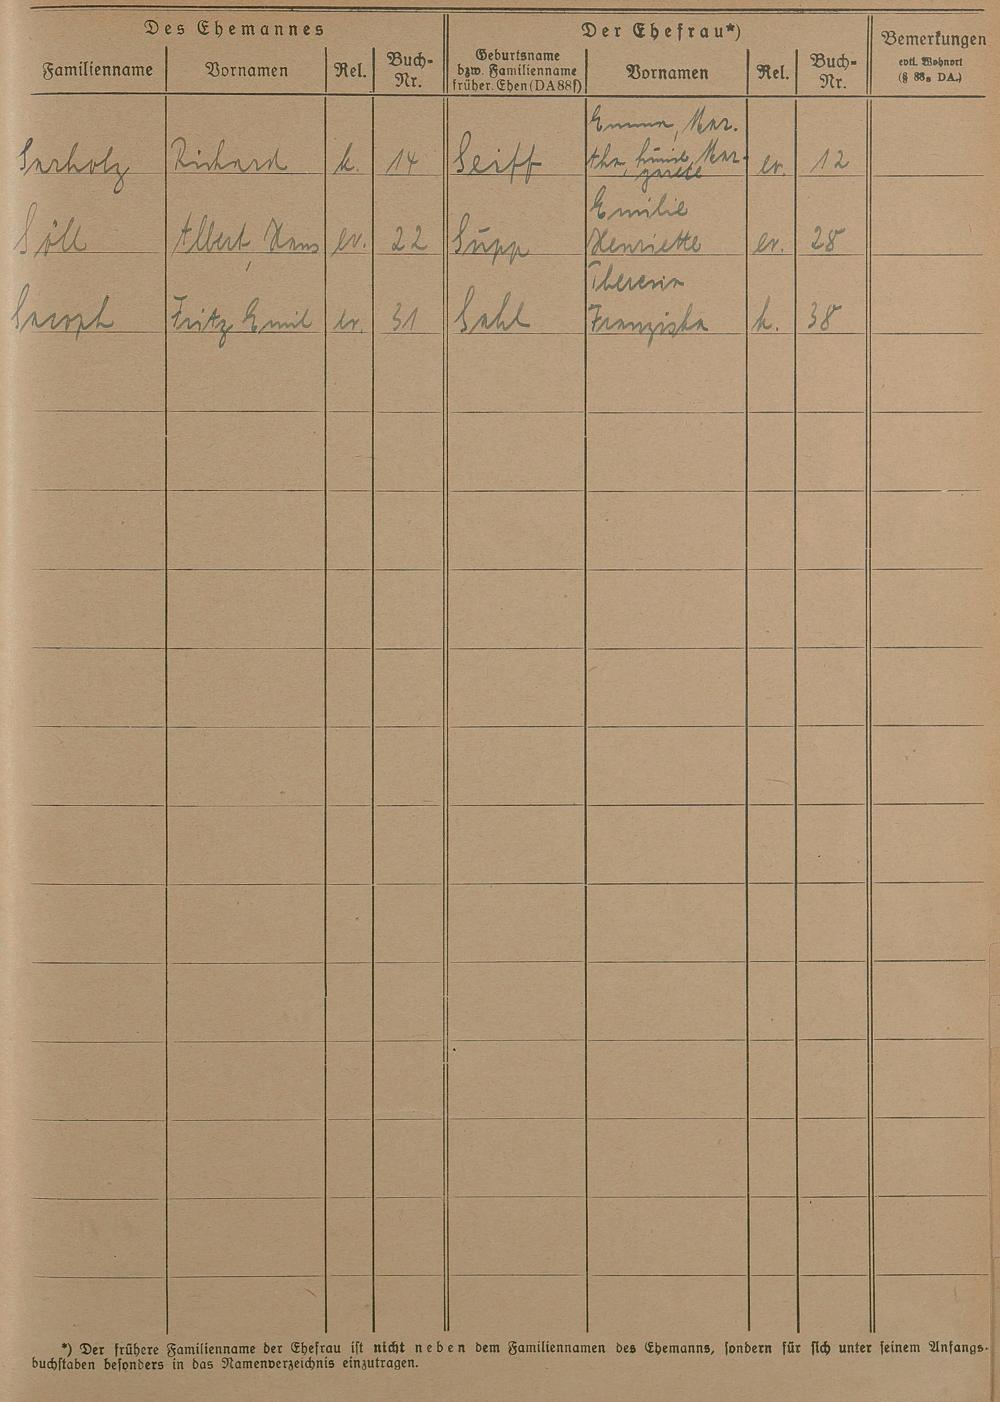 Des Ehemannes
Der Ehefrau*)
Bemerkungen
evtl. Wohnort
(§ 88, DA.)
Familienname Vornamen Rel. Buch-
Nr.
Geburtsname
bzw. Familienname
früher. Ehen (DA 88f)
Vornamen Rel. Buch-
Nr.
Emma, Mar.
Sarholz Richard k. 14 Seiff tha, Mar-
garete ev. 12
Emilie
Söll Albert, Hans ev. 22 Supp Henriette ev. 28
Theresia
Fritz Emil ev. 31 Sahl Franziska k. 38
*) Der frühere Familienname der Ehefrau ist nicht neben dem Familiennamen des Ehemanns, sondern für sich unter seinem Anfangs-
buchstaben besonders in das Namenverzeichnis einzutragen.